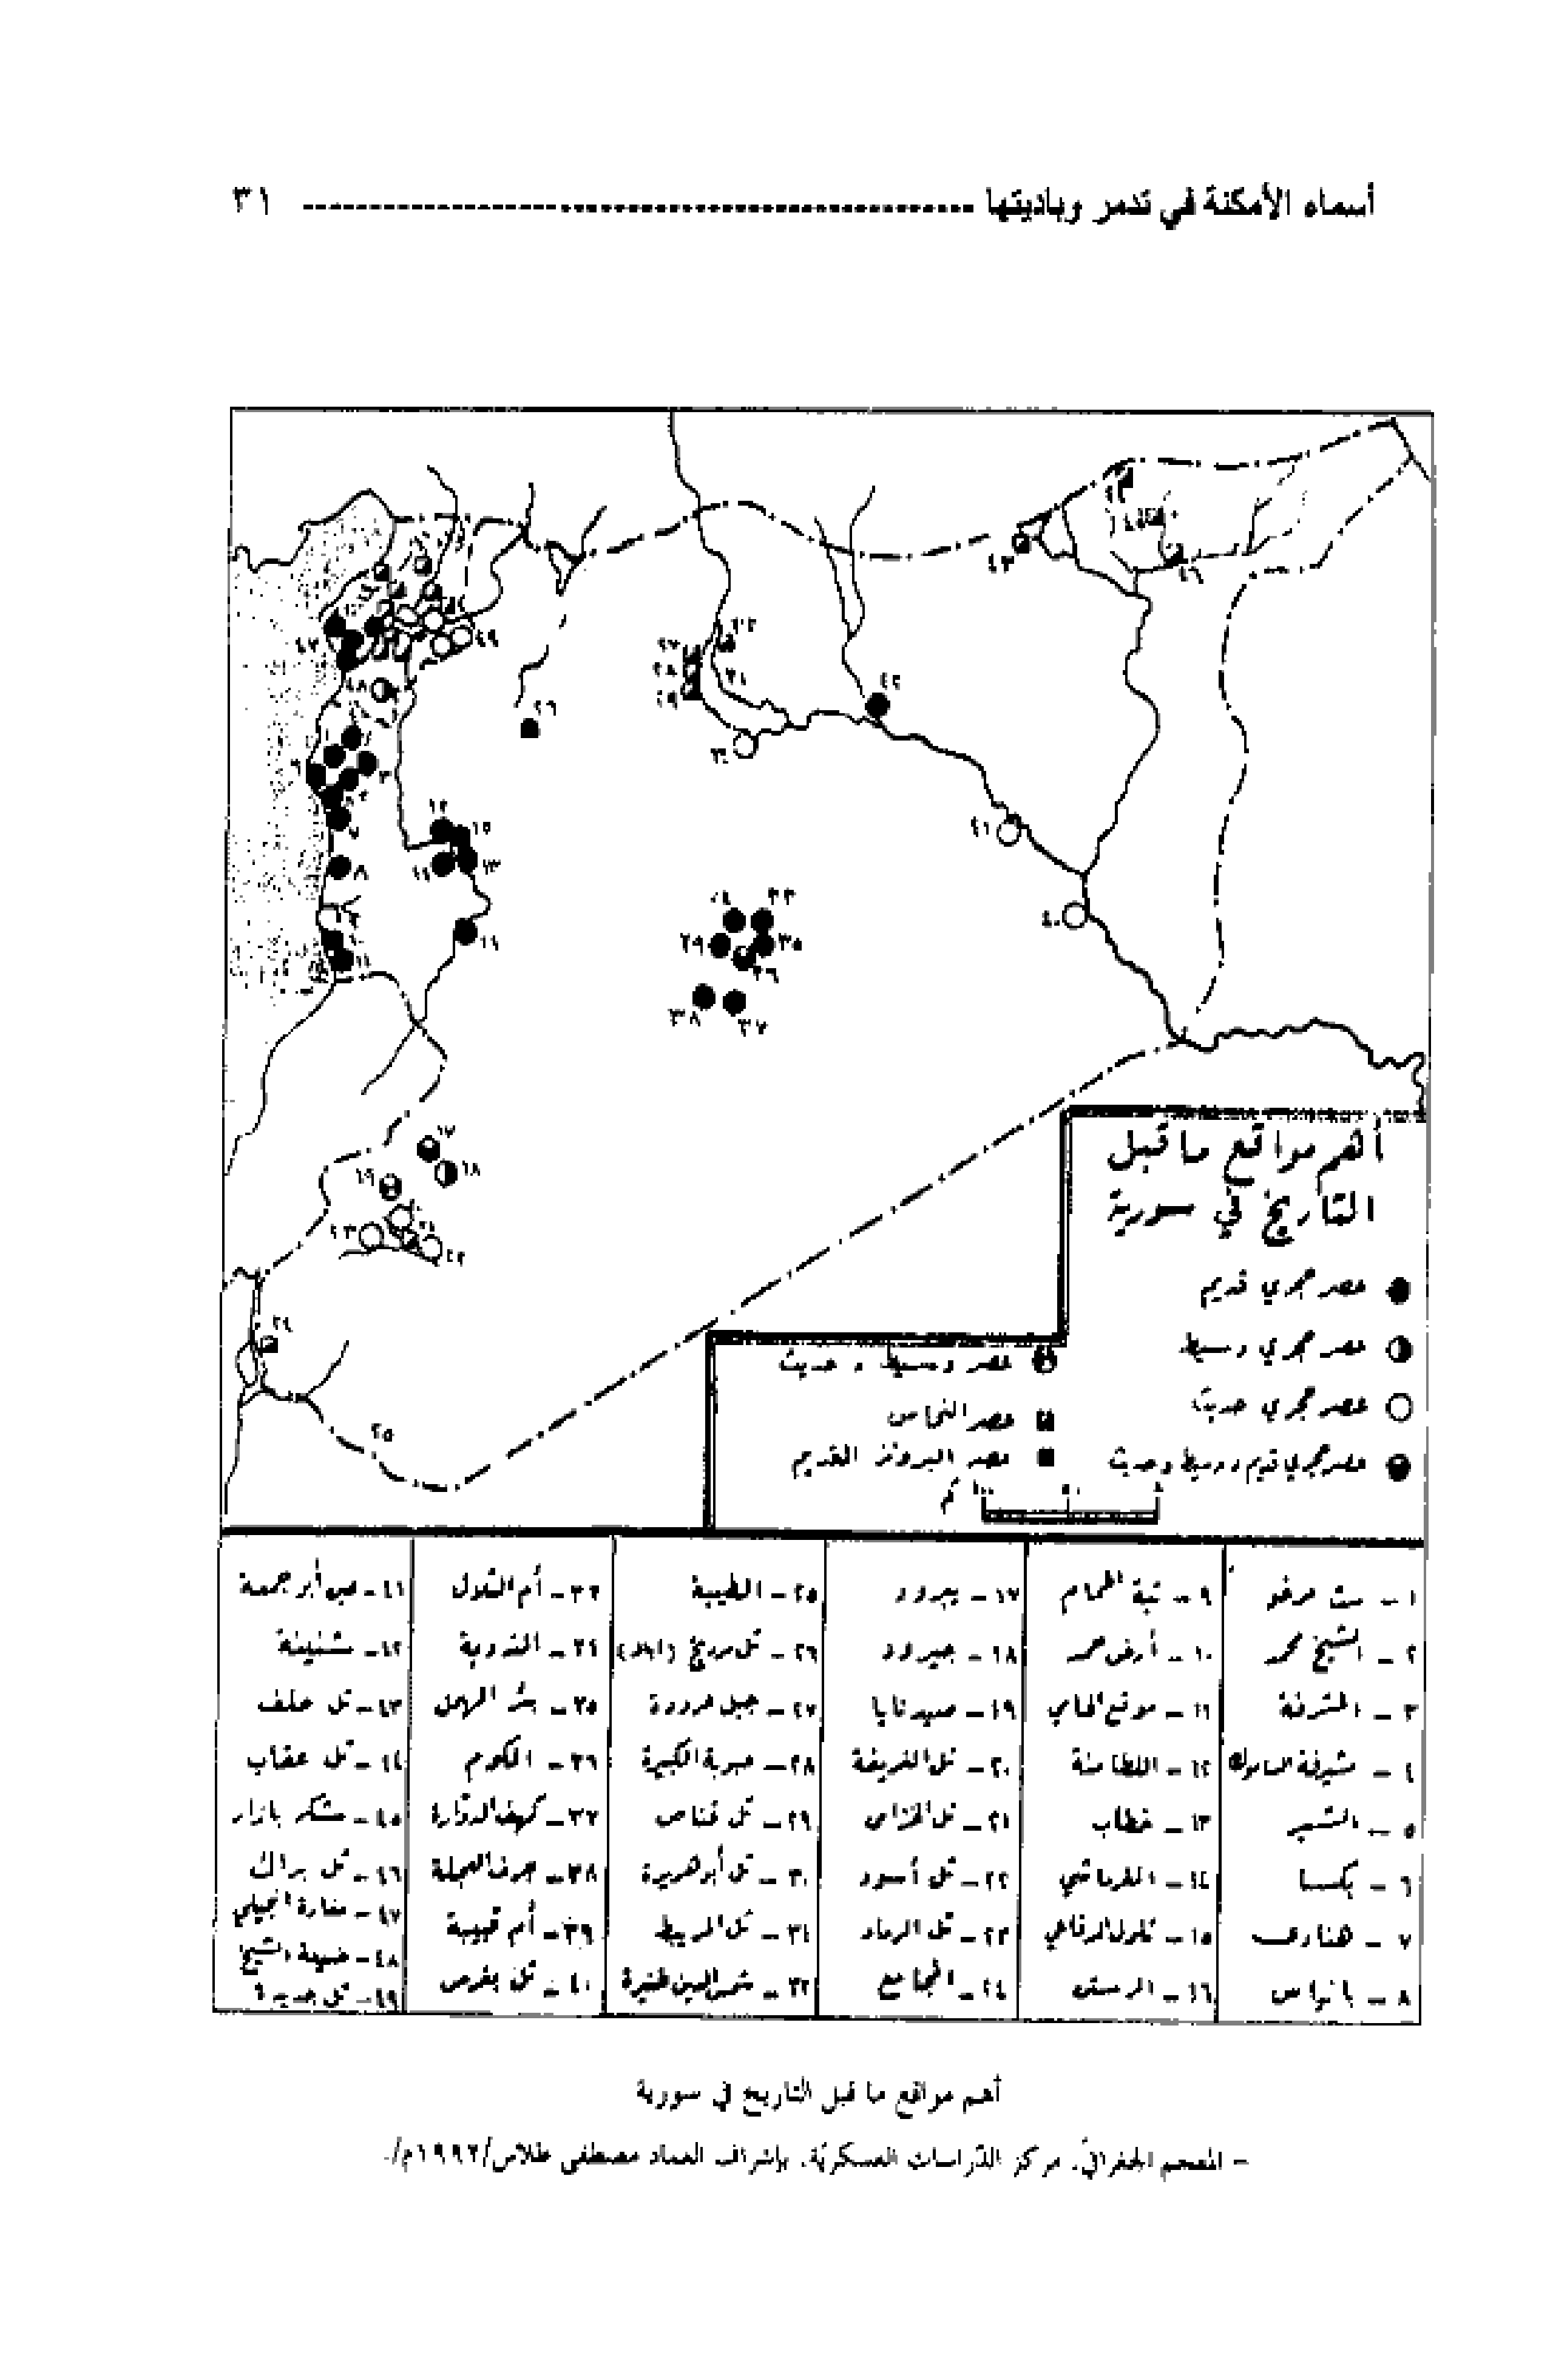 أسماء الأمكنة في تدمر وباديتها ------------------------------ ٣١
أهم مواقع ما قبل
التاريخ في سورية
عصر حجري قديم
عصر حجري وسيط
عصر حجري حديث
عصر حجري قديم ووسيط وحديث
عصر وسيط وحديث
عصر النحاس
عصر البرونز القديم
كم
١ - ست مرخو
٢ - الشيخ محمد
٣ - المشرفة
٤ - مشيرفة الساموك
٥ - الشير
٦ - بكسا
٧ - هنادي
٨ - بانياس
٩ - تبة الحمام
١٠ - أرض حمد
١١ - موقع الحامي
١٢ - اللطامنة
١٣ - خطاب
١٤ - الغرماشي
١٥ - تلول الرفاعي
١٦ - الرستن
١٧ - يبرود
١٨ - جيرود
١٩ - صيدنايا
٢٠ - تل الغريفة
٢١ - تل الخزامى
٢٢ - تل أسود
٢٣ - تل الرماد
٢٤ - المجامع
٢٥ - الطيبة
٢٦ - تل مرديخ (ابلا)
٢٧ - جبل عرودة
٢٨ - حبوبة الكبيرة
٢٩ - تل قناص
٣٠ - تل أبو هريرة
٣١ - تل المريبط
٣٢ - شمس الدين طنيرة
٣٣ - أم التلول
٣٤ - الندوية
٣٥ - بئر الهمل
٣٦ - الكوم
٣٧ - كهف الدوّارة
٣٨ - جرف العجلة
٣٩ - أم قبيبة
٤٠ - تل بقرص
٤١ - عين أبو جمعة
٤٢ - شنينة
٤٣ - تل حلف
٤٤ - تل عقاب
٤٥ - شكر بازار
٤٦ - تل براك
٤٧ - مغارة
٤٨ - ضهرة الشيخ
٤٩ - تل جديدة
أهم مواقع ما قبل التاريخ في سورية
- المعجم الجغرافيّ. مركز الدّراسات العسكريّة. بإشراف العماد مصطفى طلاس/١٩٩٢م/.